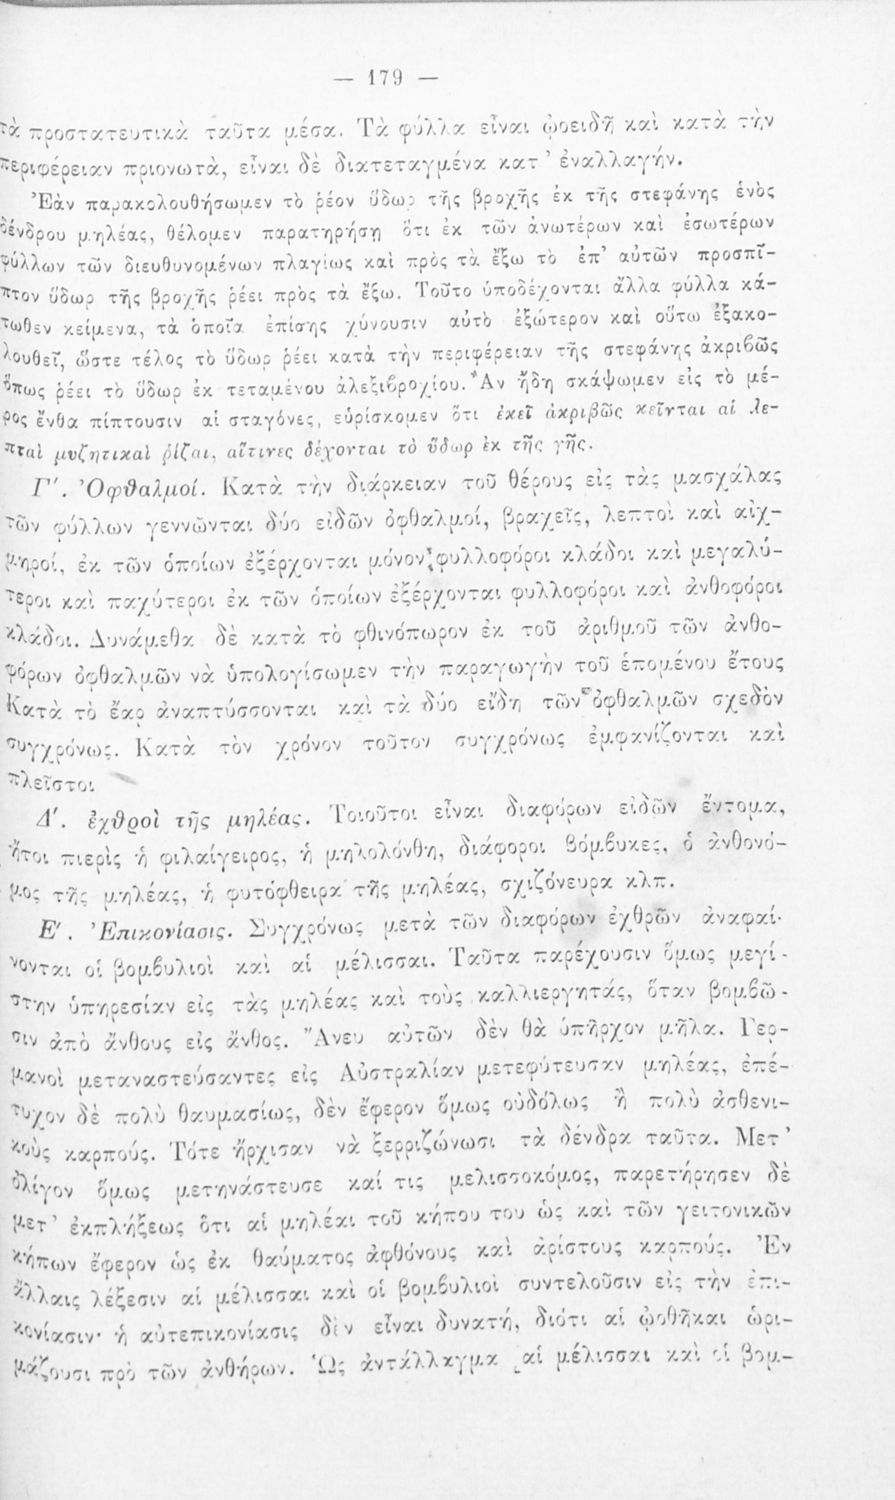 — 179 —
τὰ προστατευτικὰ ταῦτα μέσα. Τὰ φύλλα εἶναι ᾠοειδῆ καὶ κατὰ τὴν
περιφέρειαν πριονωτὰ, εἶναι δὲ διατεταγμένα κατ’ ἐναλλαγήν.
Ἐὰν παρακολουθήσωμεν τὸ ῥέον ὕδωρ τῆς βροχῆς ἐκ τῆς στεφάνης ἑνὸς
δένδρου μηλέας, θέλομεν παρατηρήσῃ ὅτι ἐκ τῶν ἀνωτέρων καὶ ἐσωτέρων
φύλλων τῶν διευθυνομένων πλαγίως καὶ πρὸς τὰ ἔξω τὸ ἐπ’ αὐτῶν προσπῖ-
πτον ὕδωρ τῆς βροχῆς ῥέει πρὸς τὰ ἔξω. Τοῦτο ὑποδέχονται ἄλλα φύλλα κά-
τωθεν κείμενα, τὰ ὁποῖα ἐπίσης χύνουσιν αὐτὸ ἐξώτερον καὶ οὕτω ἐξακο-
λουθεῖ, ὥστε τέλος τὸ ὕδωρ ῥέει κατὰ τὴν περιφέρειαν τῆς στεφάνης ἀκριβῶς
ὅπως ῥέει τὸ ὕδωρ ἐκ τεταμένου ἀλεξιβροχίου. Ἂν ἤδη σκάψωμεν εἰς τὸ μέ-
ρος ἔνθα πίπτουσιν αἱ σταγόνες, εὑρίσκομεν ὅτι ἐκεῖ ἀκριβῶς κεῖνται αἱ λε-
πταὶ μυζητικαὶ ῥίζαι, αἵτινες δέχονται τὸ ὕδωρ ἐκ τῆς γῆς.
Γ′. Ὀφθαλμοί. Κατὰ τὴν διάρκειαν τοῦ θέρους εἰς τὰς μασχάλας
τῶν φύλλων γεννῶνται δύο εἰδῶν ὀφθαλμοί, βραχεῖς, λεπτοὶ καὶ αἰχ-
μηροί, ἐκ τῶν ὁποίων ἐξέρχονται μόνον φυλλοφόροι κλάδοι καὶ μεγαλύ-
τεροι καὶ παχύτεροι ἐκ τῶν ὁποίων ἐξέρχονται φυλλοφόροι καὶ ἀνθοφόροι
κλάδοι. Δυνάμεθα δὲ κατὰ τὸ φθινόπωρον ἐκ τοῦ ἀριθμοῦ τῶν ἀνθο-
φόρων ὀφθαλμῶν νὰ ὑπολογίσωμεν τὴν παραγωγὴν τοῦ ἑπομένου ἔτους
Κατὰ τὸ ἔαρ ἀναπτύσσονται καὶ τὰ δύο εἴδη τῶν ὀφθαλμῶν σχεδὸν
συγχρόνως. Κατὰ τὸν χρόνον τοῦτον συγχρόνως ἐμφανίζονται καὶ
πλεῖστοι
Δ′. ἐχθροὶ τῆς μηλέας. Τοιοῦτοι εἶναι διαφόρων εἰδῶν ἔντομα,
ἤτοι πιερὶς ἡ φιλαίγειρος, ἡ μηλολόνθη, διάφοροι βόμβυκες, ὁ ἀνθονό-
μος τῆς μηλέας, ἡ φυτόφθειρα τῆς μηλέας, σχιζόνευρα κλπ.
Ε′. Ἐπικονίασις. Συγχρόνως μετὰ τῶν διαφόρων ἐχθρῶν ἀναφαί-
νονται οἱ βομβυλιοὶ καὶ αἱ μέλισσαι. Ταῦτα παρέχουσιν ὅμως μεγί-
στην ὑπηρεσίαν εἰς τὰς μηλέας καὶ τοὺς καλλιεργητάς, ὅταν βομβῶ-
σιν ἀπὸ ἄνθους εἰς ἄνθος. Ἄνευ αὐτῶν δὲν θὰ ὑπῆρχον μῆλα. Γερ-
μανοὶ μεταναστεύσαντες εἰς Αὐστραλίαν μετεφύτευσαν μηλέας, ἐπέ-
τυχον δὲ πολὺ θαυμασίως, δὲν ἔφερον ὅμως οὐδόλως ἢ πολὺ ἀσθενι-
κοὺς καρπούς. Τότε ἤρχισαν νὰ ξερριζώνωσι τὰ δένδρα ταῦτα. Μετ’
ὀλίγον ὅμως μετηνάστευσε καί τις μελισσοκόμος, παρετήρησεν δὲ
μετ’ ἐκπλήξεως ὅτι αἱ μηλέαι τοῦ κήπου του ὡς καὶ τῶν γειτονικῶν
κήπων ἔφερον ὡς ἐκ θαύματος ἀφθόνους καὶ ἀρίστους καρπούς. Ἐν
ἄλλαις λέξεσιν αἱ μέλισσαι καὶ οἱ βομβυλιοὶ συντελοῦσιν εἰς τὴν ἐπι-
κονίασιν· ἡ αὐτεπικονίασις δὲν εἶναι δυνατή, διότι αἱ ᾠοθῆκαι ὡρι-
μάζουσι πρὸ τῶν ἀνθήρων. Ὡς ἀντάλλαγμα αἱ μέλισσαι καὶ οἱ βομ-